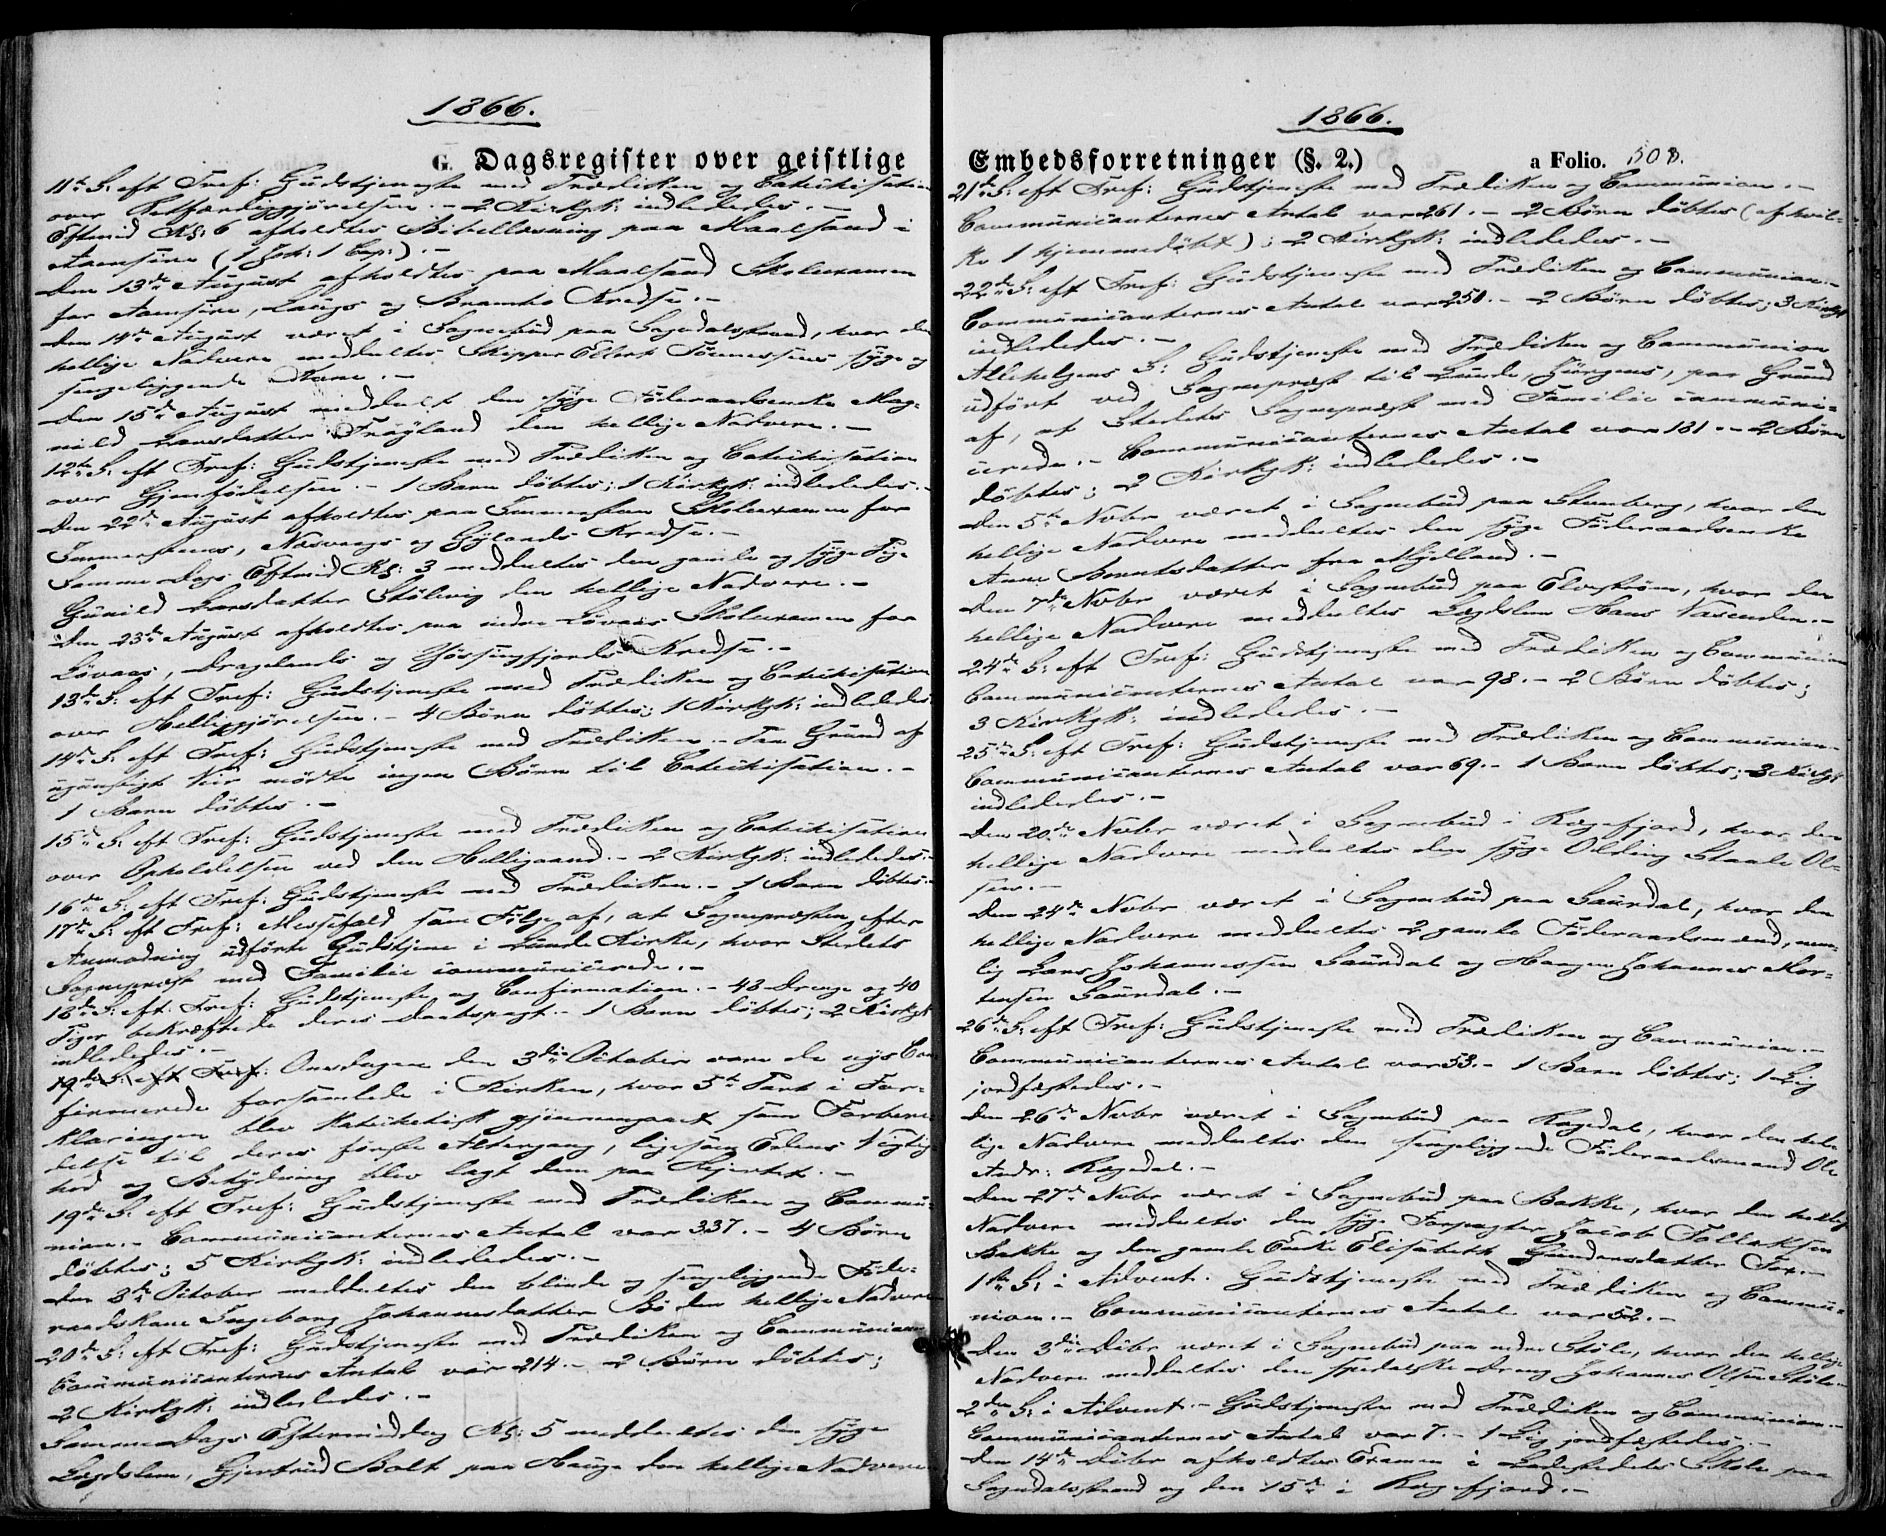 1866.
G. Dagsregister over geistlige
11te S: eft Tref: Gudstjeneste med Prædiken og Catechisation
over Retfærdiggjørelsen. - 2 Kirkgk: indlededes. -
Eftmid Kl: 6 afholdtes Bibellæsning paa Maalsand i
Aamsire (1 Joh: 1 Cap:). -
Den 13de August afholdtes paa Maalsand Skolexamen
for Aamsire, Laugs og Bramho Kredse. -
Den 14de August været i Sognebud paa Sogndalsstrand, hvor den
hellige Nadvere meddeltes Skipper Ellert Tönnessens syge og
sengeliggende Kone. -
Den 15de August meddelt den syge Föderaadsenke Mag-
nild Larsdatter Fröyland den hellige Nadvere. -
12te S: eft Tref: Gudstjeneste med Prædiken og Catechisation
over Gjenfödelsen. - 1 Barn döbtes; 1 Kirkgk: indlededes. -
Den 22de August afholdtes paa Immersteen Skolexamen for
Immersteens, Næsvaags og Gylands Kredse. -
Samme Dags Eftmid Kl: 3 meddeltes den gamle og syge Pige
Gunild Larsdatter Stölevig den hellige Nadvere. -
Den 23de August afholdtes paa indre Lövaas Skolexamen for
Lövaas, Dragelands og Jössingfjords Kredse. -
13de S: eft Tref: Gudstjeneste med Prædiken og Catechisation
over Helliggjörelsen. - 4 Börn döbtes; 1 Kirkgk: indlededes
14de S: eft Tref: Gudstjeneste med Prædiken. - Paa Grund af
ugunstigt Veir mödte ingen Börn til Catechisation. -
1 Barn döbtes. -
15de S: eft Tref: Gudstjeneste med Prædiken og Catechisation
over Opholdelsen ved den Helligaand. - 2 Kirkgk: indlededes. -
16de S: eft Tref: Gudstjeneste med Prædiken. - 1 Barn döbtes. -
17de S: eft Tref: Messefald som Fölge af, at Sognepræsten efter
Anmodning udförte Gudstjene i Lunde Kirke, hvor Stedets
Sognepræst med Familie communicerede. -
18de S: eft Tref: Gudstjeneste og Confirmation. - 43 Drenge og 40
Piger bekræftede deres Daabspagt. - 1 Barn döbtes; 2 Kirkgk
indlededes. -
19de S: eft Tref: Onsdagen den 3die October vare de nys Con
firmerede forsamlede i Kirken, hvor 5te Part i For-
klaringen blev katechetisk gjennemgaaet som Forbere
delse til deres förste Altergang, ligesom Edens Vigtig
hed og Betydning blev lagt dem paa Hjertet. -
19de S: eft Tref: Gudstjeneste med Prædiken og Commu-
nion. - Communicanternes Antal var 337. - 4 Börn
döbtes; 5 Kirkgk: indlededes. -
Den 8de October meddeltes den blinde og sengeliggende Föde-
raadskone Ingeborg Johannesdatter Bö den hellige Nadvere
20de S: eft Tref: Gudstjeneste med Prædiken og Communion
Communicanternes Antal var 214. - 2 Börn döbtes;
2 Kirkgk: indlededes. -
Samme Dags Eftermiddag Kl: 5 meddeltes den syge
Lægdslem, Gjertrud Bolt paa Hauge den hellige Nadvere
1866.
Embedsforretninger (§. 2.) a Folio. 508.
21de S: eft Tref: Gudstjeneste med Prædiken og Communion. -
Communicanternes Antal var 261. - 2 Börn döbtes (af hvil-
ke 1 hjemmedöbt); 2 Kirkgk: indlededes. -
22de S: eft Tref: Gudstjeneste med Prædiken og Communion. -
Communicanternes Antal var 250. - 2 Börn döbtes; 3 Kirkgk
indlededes. -
Allehelgens S: Gudstjeneste med Prædiken og Communion
udfört ved Sognepræst til Lunde, Jörgens, paa Grund
af, at Stedets Sognepræst med Familie communi-
cerede. - Communicanternes Antal var 181. - 2 Börn
döbtes; 2 Kirkgk: indlededes. -
Den 5te Nvbr været i Sognebud paa Steenberg, hvor den
hellige Nadvere meddeltes den syge Föderaadsenke
Anne Berntsdatter fra Mydland. -
Den 7de Nvbr været i Sognebud paa Elveström, hvor den
hellige Nadvere meddeltes Lægdslem Hans Vasenden. -
24de S: eft Tref: Gudstjeneste med Prædiken og Communion
Communicanternes Antal var 98. - 2 Börn döbtes;
3 Kirkgk: indlededes. -
25de S: eft Tref: Gudstjeneste med Prædiken og Communion. -
Communicanternes Antal var 69. - 1 Barn döbtes; 3 Kirkgk
indlededes. -
Den 20de Nvbr været i Sognebud i Rægefjord, hvor den
hellige Nadvere meddeltes den syge Olding Staale Ol-
sen. -
Den 24de Nvbr været i Sognebud paa Saurdal, hvor den
hellige Nadvere meddeltes 2 gamle Föderaadsmænd, nem-
lig Lars Johannessen Saurdal og Haagen Johannes Mor-
tensen Saurdal. -
26de S: eft Tref: Gudstjeneste med Prædiken og Communion. -
Communicanternes Antal var 53. - 1 Barn döbtes; 1 Lig
jordfæstedes. -
Den 26de Nvbr været i Sognebud paa Rægedal, hvor den hel-
lige Nadvere meddeltes den sengeliggende Föderaadsmand Ole
Andr: Rægedal. -
Den 27de Nvbr været i Sognebud paa Bakke, hvor den hellige
Nadvere meddeltes den syge Forpagter Jacob Tollaksen
Bakke og den gamle Enke Elisabeth Gundersdatter
1ste S: i Advent. Gudstjeneste med Prædiken og Commu-
nion. - Communicanternes Antal var 52. -
Den 3die Dcbr været i Sognebud paa nedre Stöle, hvor den hellige
Nadvere meddeltes den spedalske Dreng Johannes Olsen Stöle. -
2den S: i Advent. - Gudstjeneste med Prædiken og Communion. -
Communicanternes Antal var 7. - 1 Lig jordfæstedes. -
Den 14de Dcbr afholdtes Examen i Ladestedets Skole paa
Sogndalsstrand og den 15de i Rægefjord. -